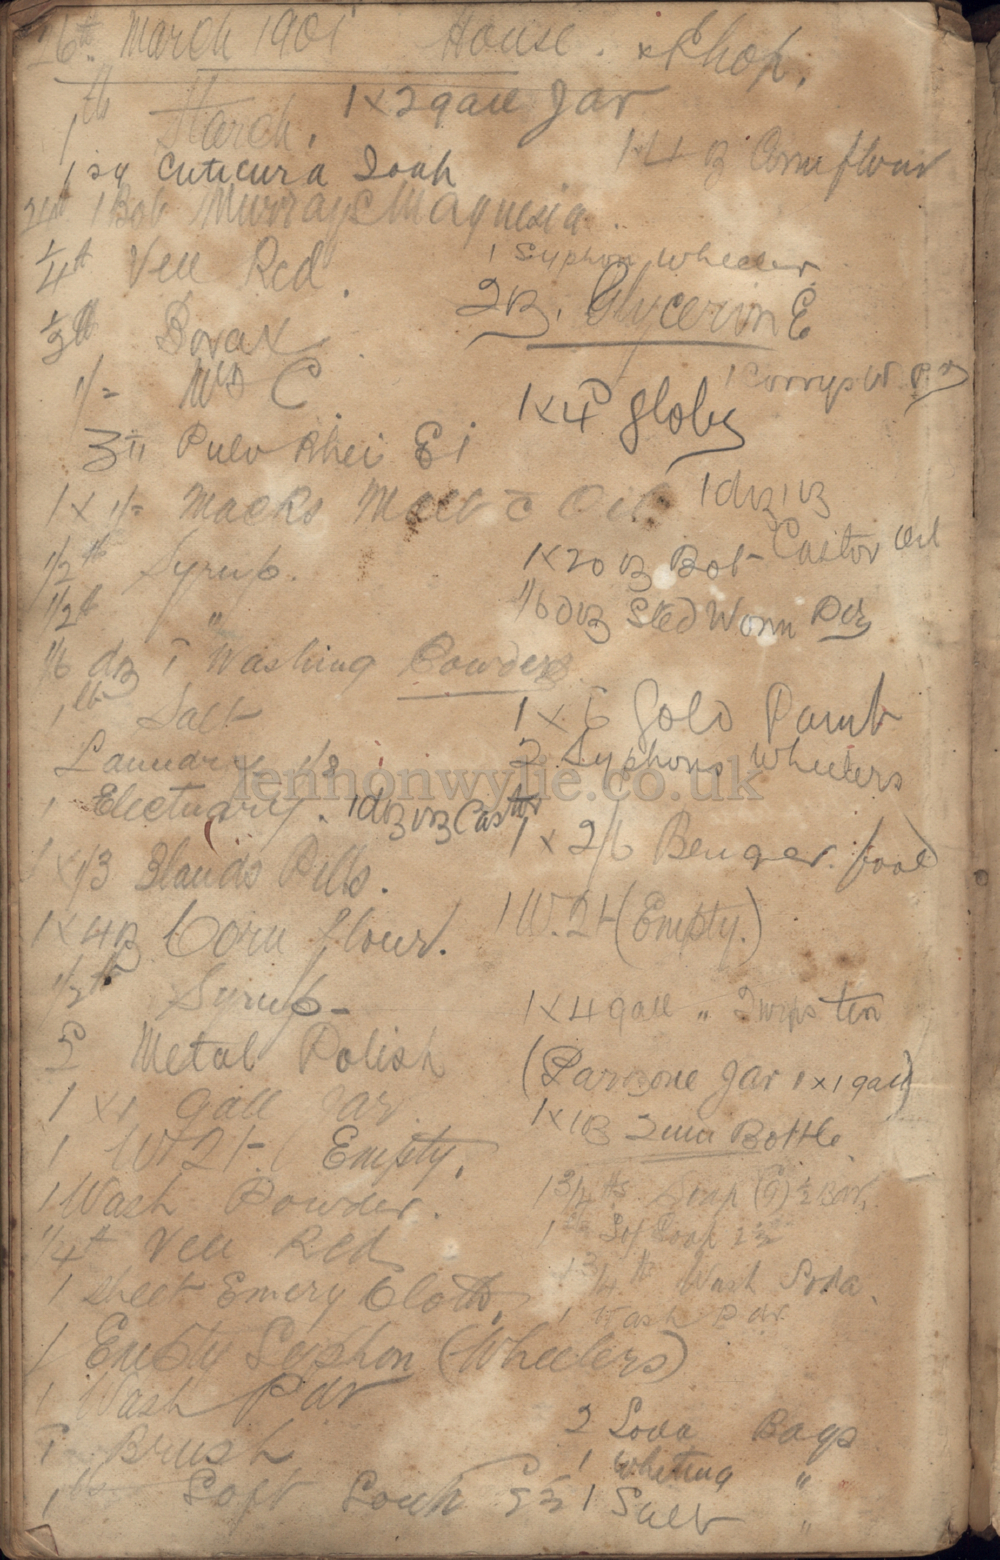 March 1901 House. × Shop.
1 lb Starch. 1 x 2 gall Jar
1 x 4 oz Corn flour
1 sq Cuticura Soap
1 Bot Murrays Magnesia.
1/4 lb Ven Red. 1 Syphon Wheeler
2 oz. Glycerin E
1/2 lb Borax
1/= C. 1 x 4 globe
Pulv Rhei
1 x 1/= Macks Malt c̄ Oil 1 doz 1 oz
Castor Oil
1/2 lb Syrup. 1 x 20 oz Bot
1/2 lb " 1/6 doz Worm Pdr
1/6 doz Washing Powders
1 lb Salt 1 x 6 Gold Paint
Laundry 2 Syphons Wheelers
lennonwylie.co.uk
1 Electuary. 1 doz 1 oz Castor
1 x 2/6 Benger food
1 x 1/3 Blauds Pills.
1 x 4 oz Corn flour. 1 W. 21 (Empty.)
1/2 lb Syrup - 1 x 4 gall " tin
Metal Polish
(Parozone Jar 1 x 1 gall)
1 x 1 gall Jar 1 x 1 oz Bottle
1 W 21 ( Empty.
1 Wash Powder. 1 3/4 lbs Soap (G) 1/2 Bar,
1/4 lb Ven Red
1 3/4 lb Wash Soda.
1 Sheet Emery Cloth. 1 Wash Pdr
1 Empty Syphon (Wheelers)
1 Wash Pdr
Brush 2 Soda Bags
1 Whiting "
1 lb Soft Soap 1 Salt "